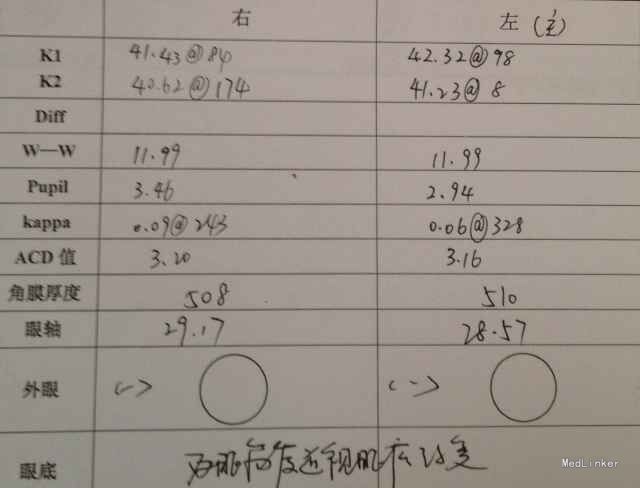 右 左(主)
K1 41.43@84 42.32@98
K2 40.62@174 41.23@8
Diff
W—W 11.99 11.99
Pupil 3.46 2.94
kappa 0.09@243 0.06@328
ACD 值 3.20 3.16
角膜厚度 508 510
眼轴 29.17 28.57
外眼 (-) (-)
眼底 双眼高度近视眼底改变
MedLinker